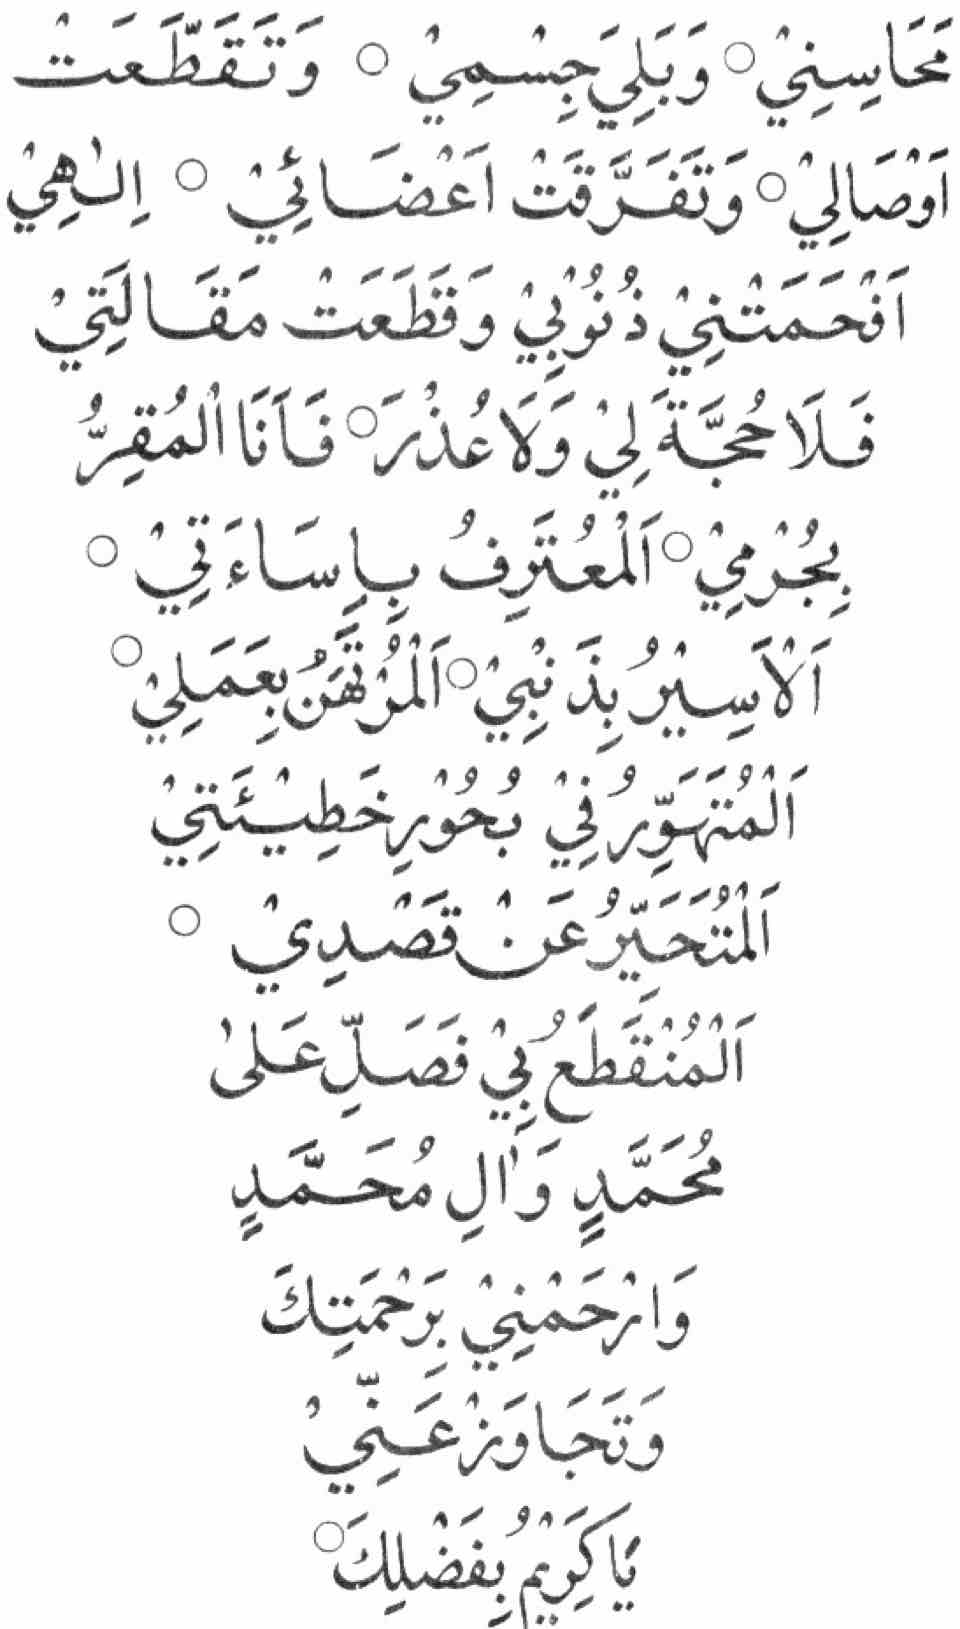 مَحَاسِنِيْ ○ وَبَلِيَ جِسْمِيْ ○ وَتَقَطَّعَتْ
اَوْصَالِيْ ○ وَتَفَرَّقَتْ اَعْضَائِيْ ○ اِلٰهِيْ
اَفْحَمَتْنِيْ ذُنُوْبِيْ وَقَطَعَتْ مَقَالَتِيْ
فَلَا حُجَّةَ لِيْ وَلَا عُذْرَ ○ فَاَنَا الْمُقِرُّ
بِجُرْمِيْ ○ اَلْمُعْتَرِفُ بِاِسَاءَتِيْ ○
اَلْاَسِيْرُ بِذَنْبِيْ ○ اَلْمُرْتَهَنُ بِعَمَلِيْ ○
اَلْمُتَهَوِّرُ فِيْ بُحُوْرِ خَطِيْئَتِيْ
اَلْمُتَحَيِّرُ عَنْ قَصْدِيْ ○
اَلْمُنْقَطَعُ بِيْ فَصَلِّ عَلٰى
مُحَمَّدٍ وَاٰلِ مُحَمَّدٍ
وَارْحَمْنِيْ بِرَحْمَتِكَ
وَتَجَاوَزْ عَنِّيْ
يَاكَرِيْمُ بِفَضْلِكَ ○